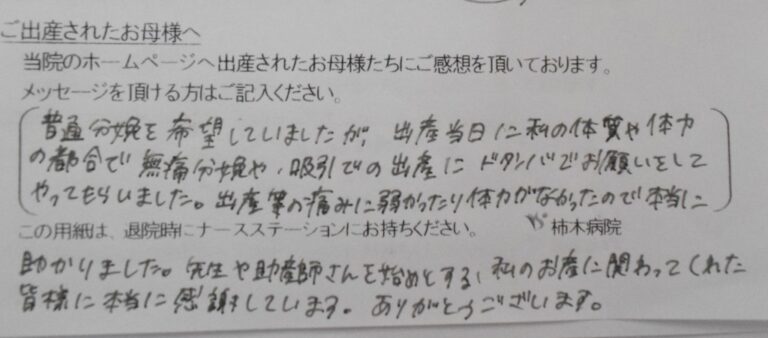 ご出産されたお母様へ
当院のホームページへ出産されたお母様たちにご感想を頂いております。
メッセージを頂ける方はご記入ください。
普通分娩を希望していましたが、出産当日に私の体質や体力
の都合で無痛分娩や、吸引での出産にドタンバでお願いをして
やってもらいました。出産等の痛みに弱かったり体力がなかったので本当に
この用紙は、退院時にナースステーションにお持ちください。 柿木病院
助かりました。先生や助産師さんを始めとする、私のお産に関わってくれた
皆様に本当に感謝しています。ありがとうございます。